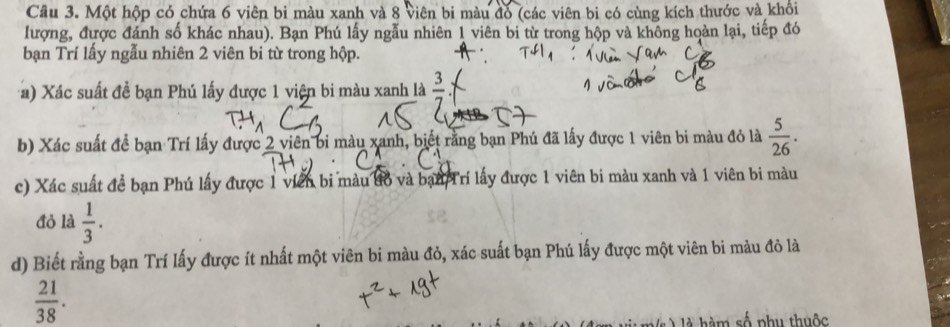 Câu 3. Một hộp có chứa 6 viên bi màu xanh và 8 viên bi màu đỏ (các viên bi có cùng kích thước và khối
lượng, được đánh số khác nhau). Bạn Phú lấy ngẫu nhiên 1 viên bi từ trong hộp và không hoàn lại, tiếp đó
bạn Trí lấy ngẫu nhiên 2 viên bi từ trong hộp.
A: TH1 : 1 viên xanh C
a) Xác suất để bạn Phú lấy được 1 viên bi màu xanh là 3/7.
TH1 15
b) Xác suất để bạn Trí lấy được 2 viên bi màu xanh, biết rằng bạn Phú đã lấy được 1 viên bi màu đỏ là 5/26.
TH2
c) Xác suất để bạn Phú lấy được 1 viên bi màu đỏ và bạn Trí lấy được 1 viên bi màu xanh và 1 viên bi màu
đỏ là 1/3.
d) Biết rằng bạn Trí lấy được ít nhất một viên bi màu đỏ, xác suất bạn Phú lấy được một viên bi màu đỏ là
21/38.
là hàm số phụ thuộc